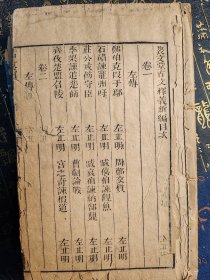 文堂古文釋義新編目次
卷一
左傳
鄭伯克段于鄢 左丘明 周鄭交質 左丘明
石碏諫寵州吁 左丘明 臧僖伯諫觀魚 左丘明
莊公戒飭守臣 左丘明 臧哀伯諫納郜鼎 左丘明
季梁諫追楚師 左丘明 曹劌論戰 左丘明
齊伐楚盟召陵 左丘明 宮之奇諫假道 左丘明
卷二
左傳